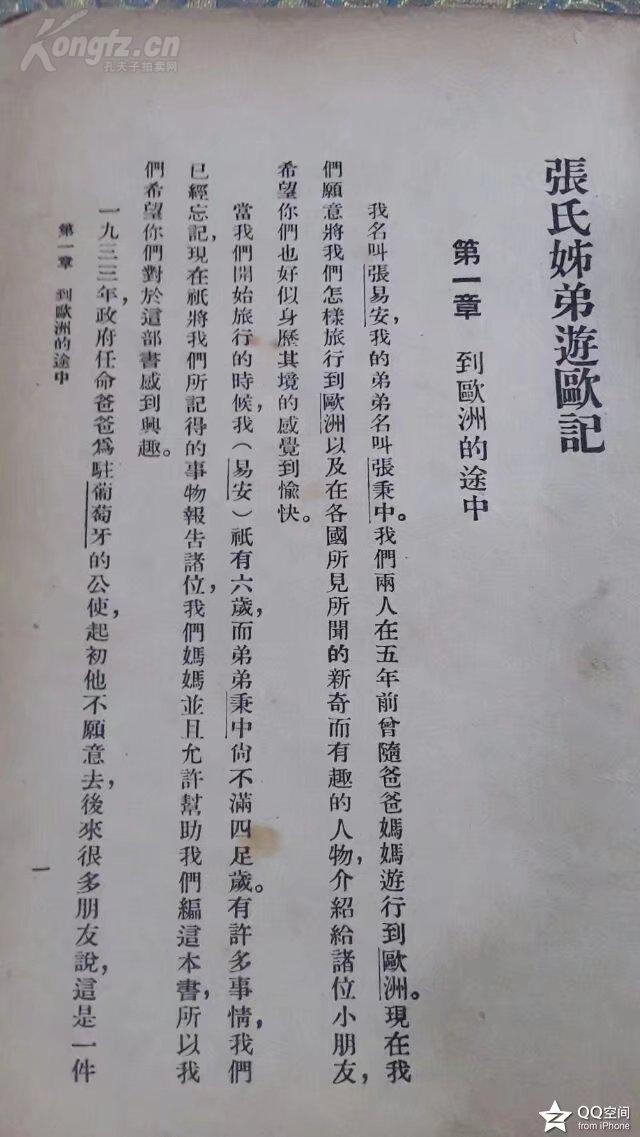 Kongfz.cn
孔夫子拍卖网
張氏姊弟遊歐記
第一章 到歐洲的途中
我名叫張易安，我的弟弟名叫張秉中。我們兩人在五年前曾隨爸爸媽媽遊行到歐洲。現在我
們願意將我們怎樣旅行到歐洲以及在各國所見所聞的新奇而有趣的人物，介紹給諸位小朋友，
希望你們也好似身歷其境的感覺到愉快。
當我們開始旅行的時候，我（易安）祇有六歲，而弟弟秉中尙不滿四足歲。有許多事情，我們
已經忘記，現在祇將我們所記得的事物報告諸位，我們媽媽並且允許幫助我們編這本書，所以我
們希望你們對於這部書感到興趣。
一九三三年，政府任命爸爸爲駐葡萄牙的公使，起初他不願意去，後來很多朋友說，這是一件
第一章 到歐洲的途中
一
QQ空间
from iPhone